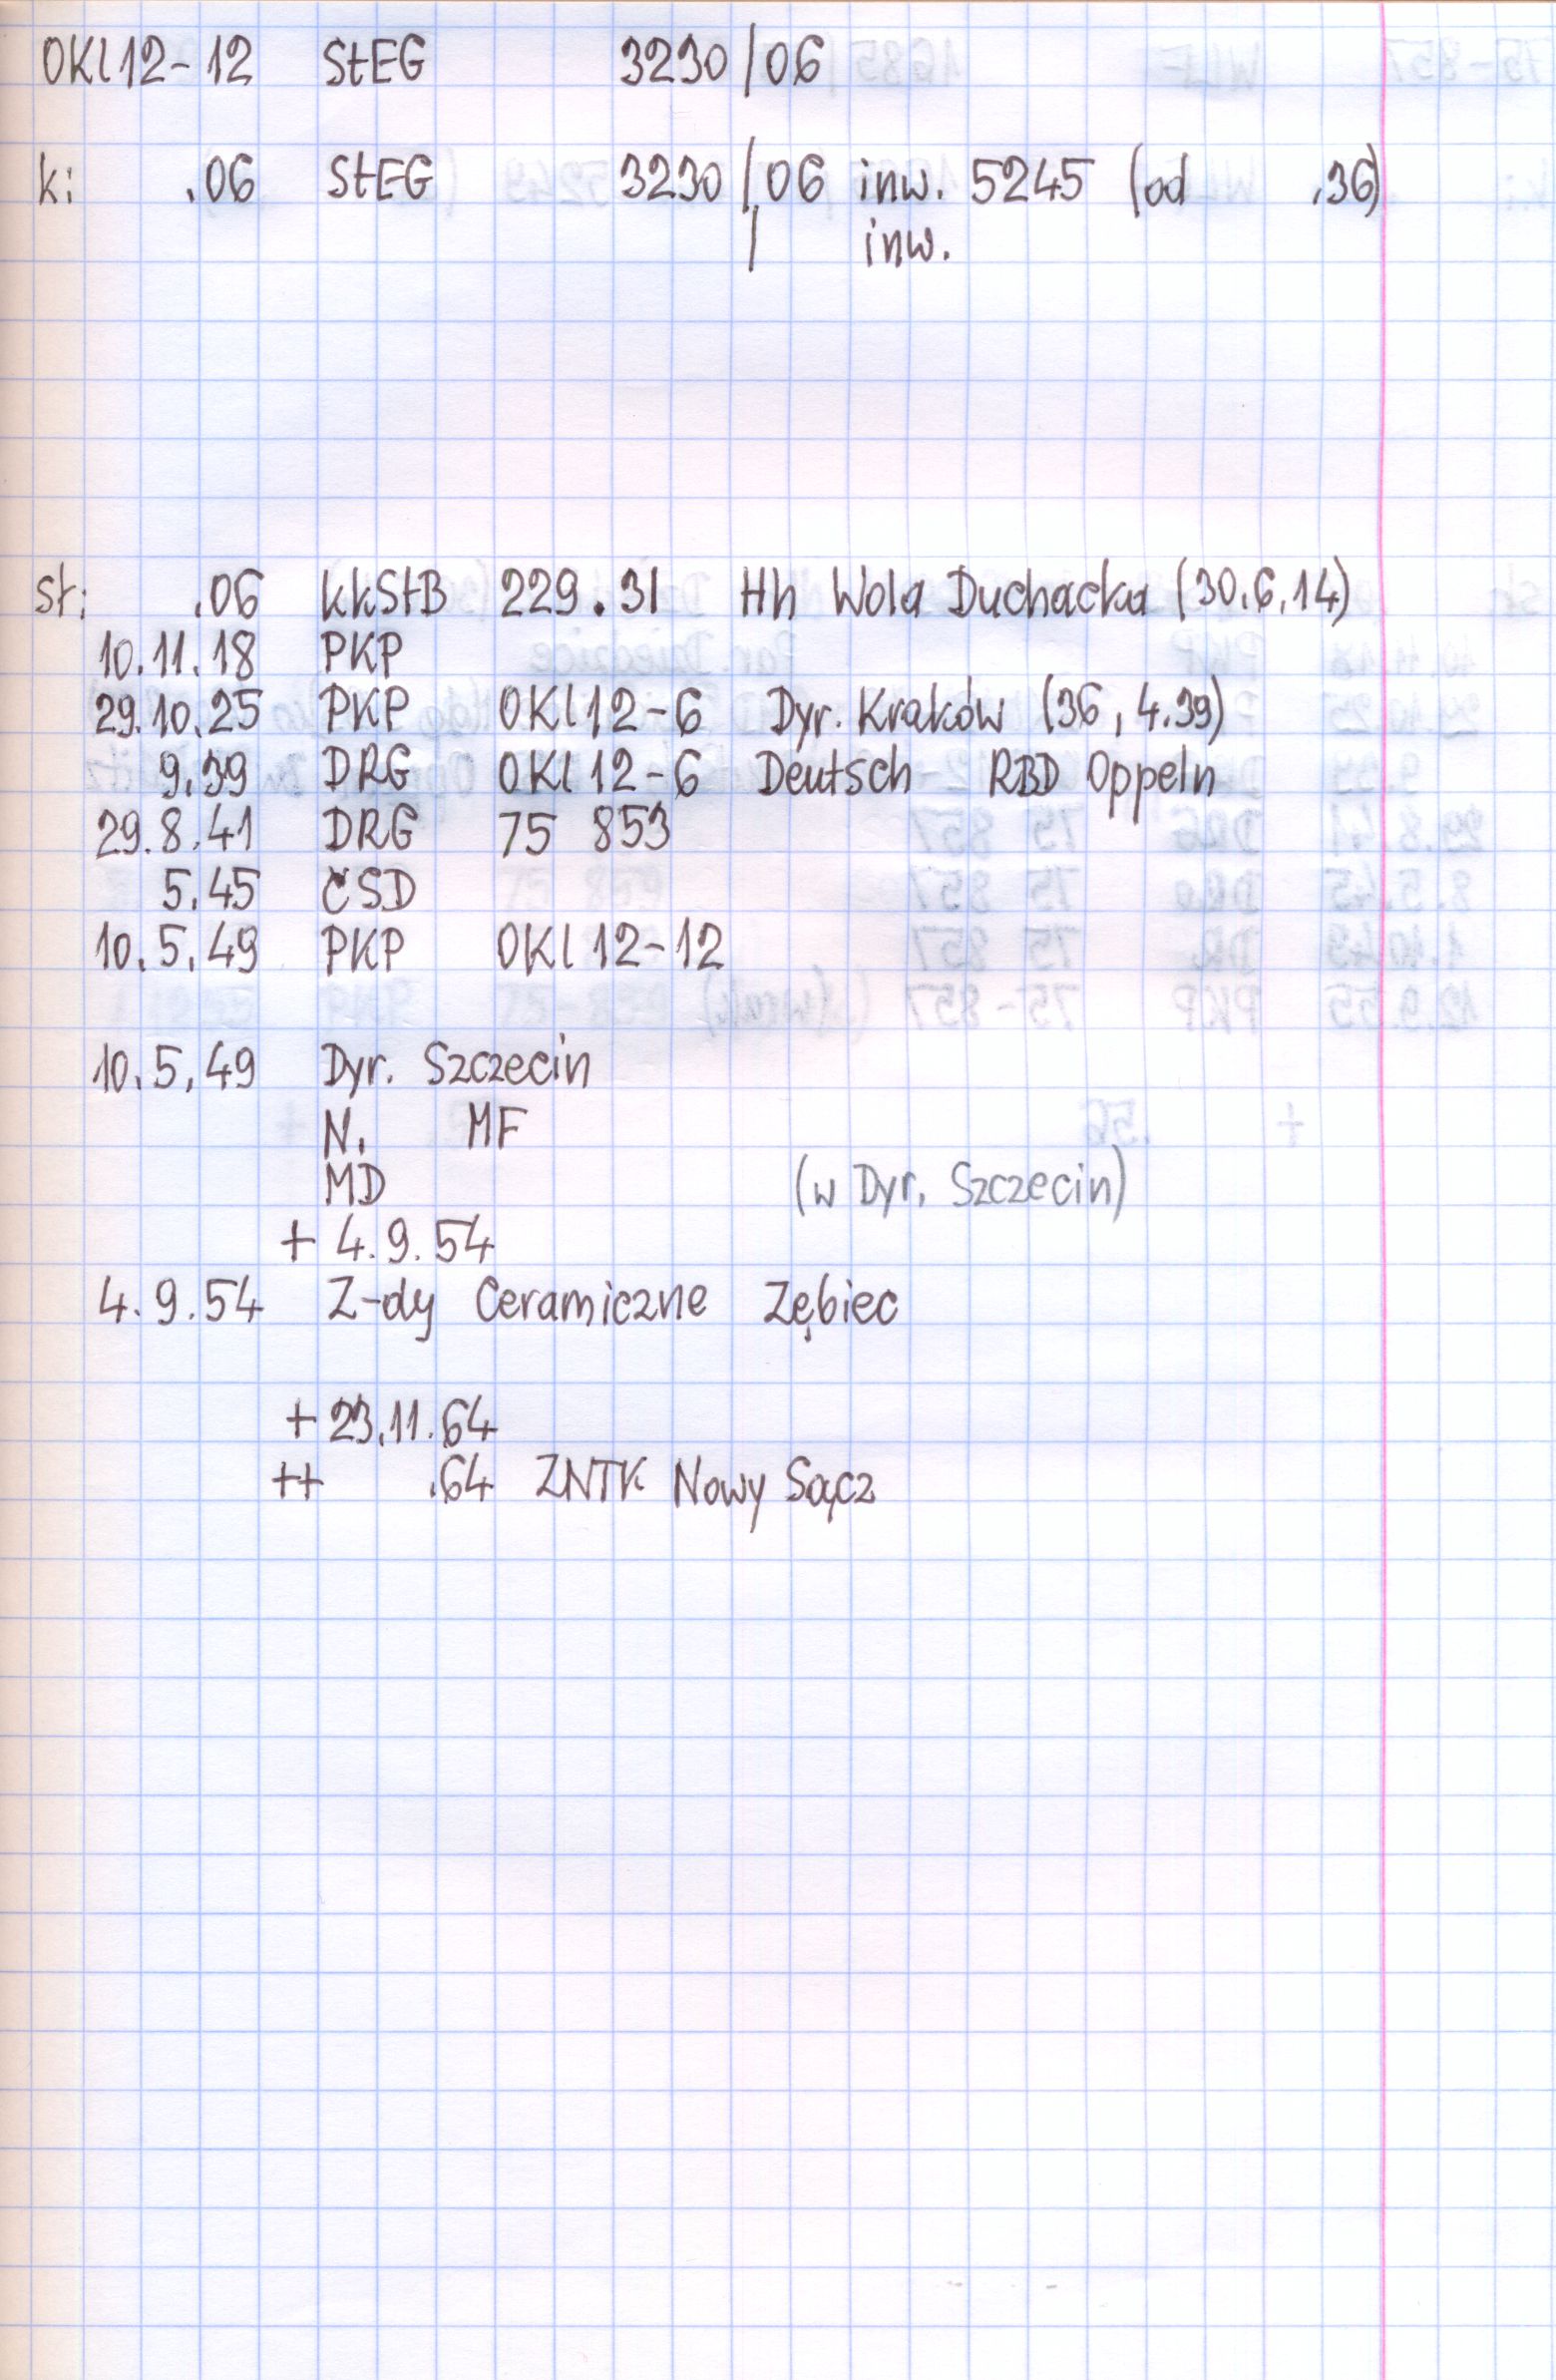 OKl12-12 StEG 3230/06
k: .06 StEG 3230/06 inw. 5245 (od .36)
/ inw.
st: .06 kkStB 229.31 Hh Wola Duchacka (30.6.14)
10.11.18 PKP
29.10.25 PKP OKl12-6 Dyr. Kraków (36, 4.39)
9.39 DRG OKl12-6 Deutsch RBD Oppeln
29.8.41 DRG 75 853
5.45 ČSD
10.5.49 PKP OKl12-12
10.5.49 Dyr. Szczecin
N. MF
MD (w Dyr. Szczecin)
+ 4.9.54
4.9.54 Z-dy Ceramiczne Zębiec
+ 23.11.64
++ .64 ZNTK Nowy Sącz